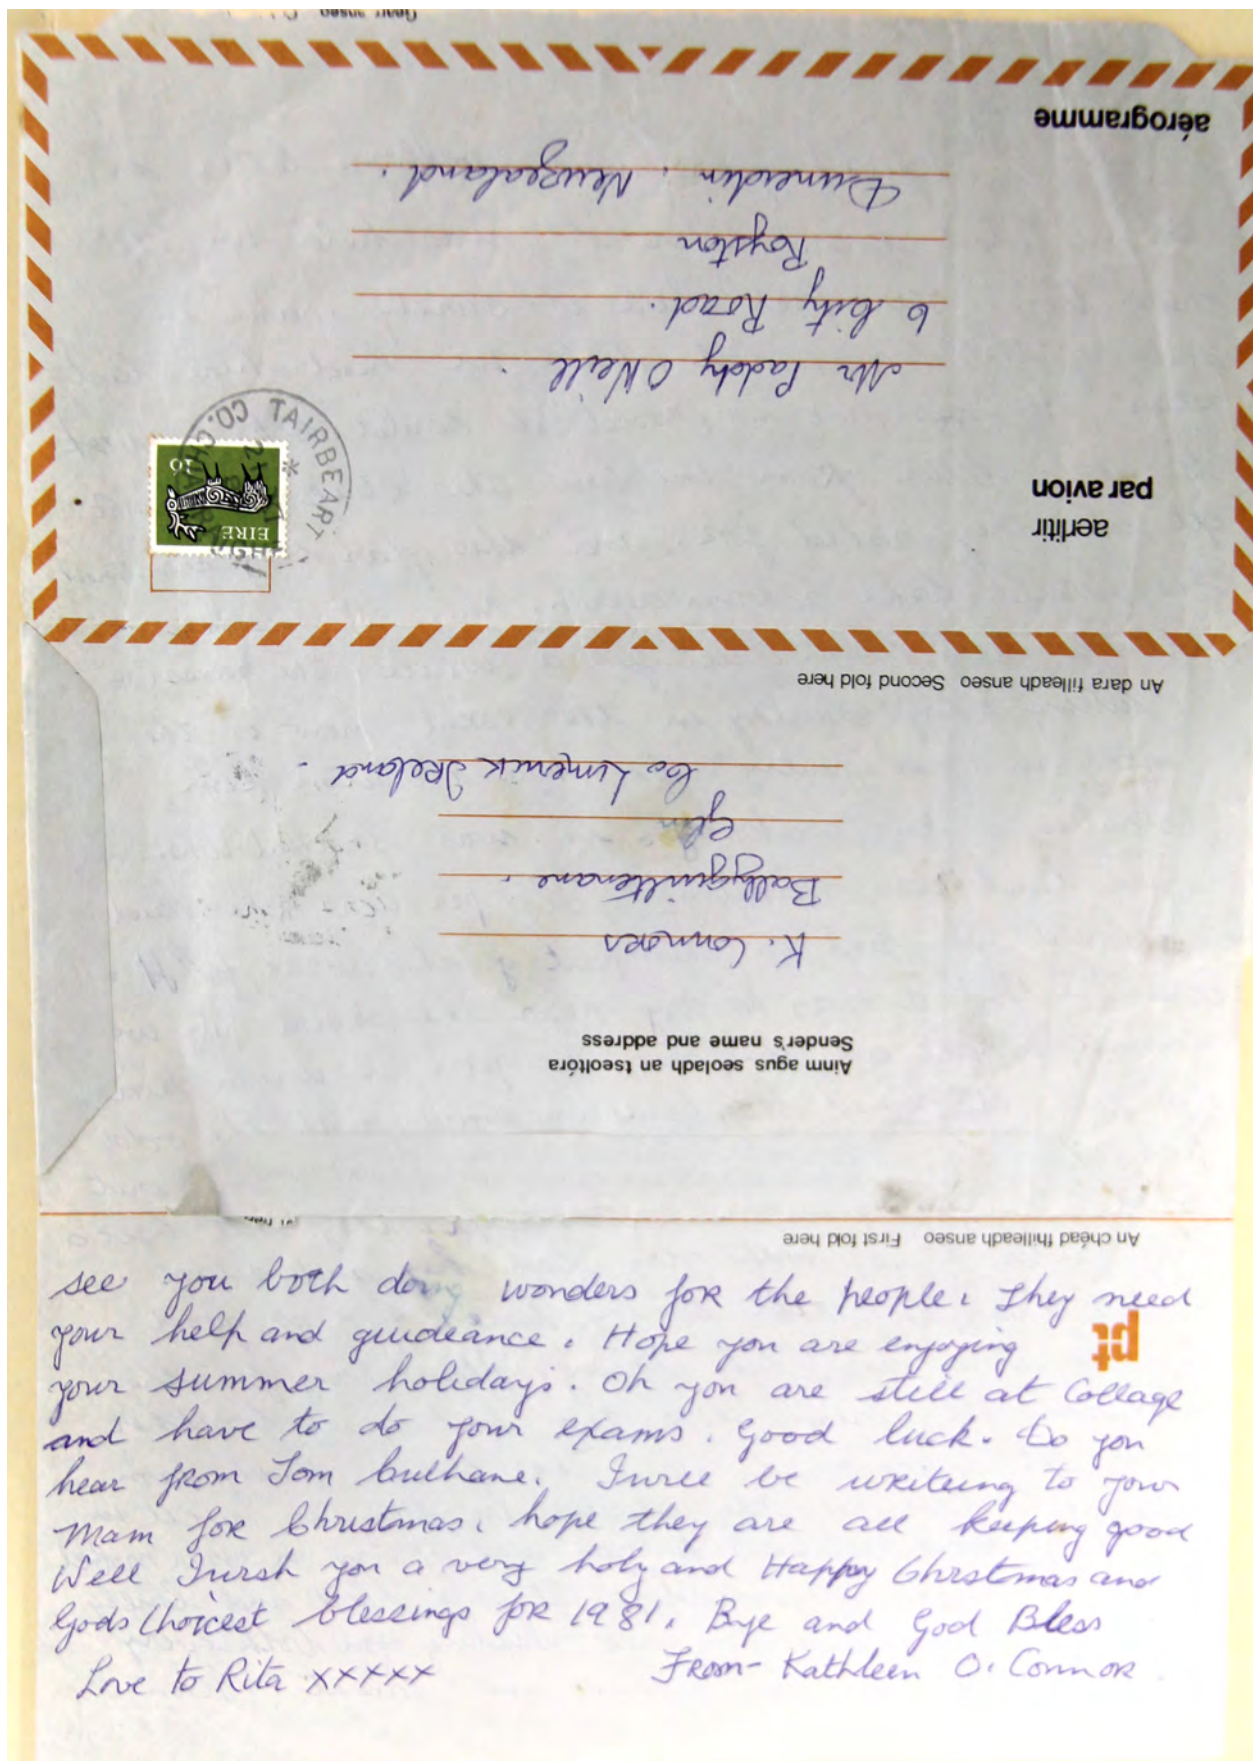 Gearr anseo
aérogramme
Mr Paddy O Neill
6 City Road.
Royston
Dunedin. Newzealand.
aerlitir
par avion
EIRE
10
TAIRBEART
CO. CHIARRAIGHE
An dara filleadh anseo Second fold here
Ainm agus seoladh an tseoltóra
Sender's name and address
K. Connors
Ballyguiltenane.
Glin
Co Limerick IReland.
An chéad fhilleadh anseo First fold here
see you both doing wonders foR the people. They need
your help and guideance. Hope you are enjoying
pt
your summer holidays. Oh you are still at Collage
and have to do your exams. Good luck. Do you
hear fRom Tom Culhane. I will be wRiteing to your
Mam foR Christmas. hope they are all keeping good
Well I wish you a very holy and Happy Christmas and
Gods Choicest blessings foR 1981. Bye and God Bless
Love to Rita xxxxx FRom- Kathleen O. ConnoR